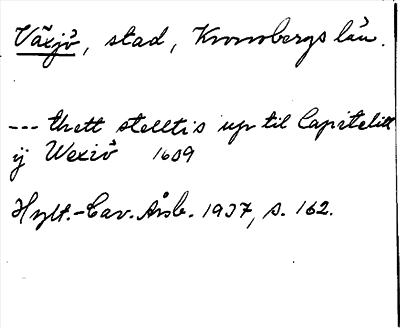 Växjö, stad, Kronobergs län.
--- thett stelltis up til Capitelitt
ij Wexiö 1609
Hylt.-Cav. Årsb. 1937, s. 162.